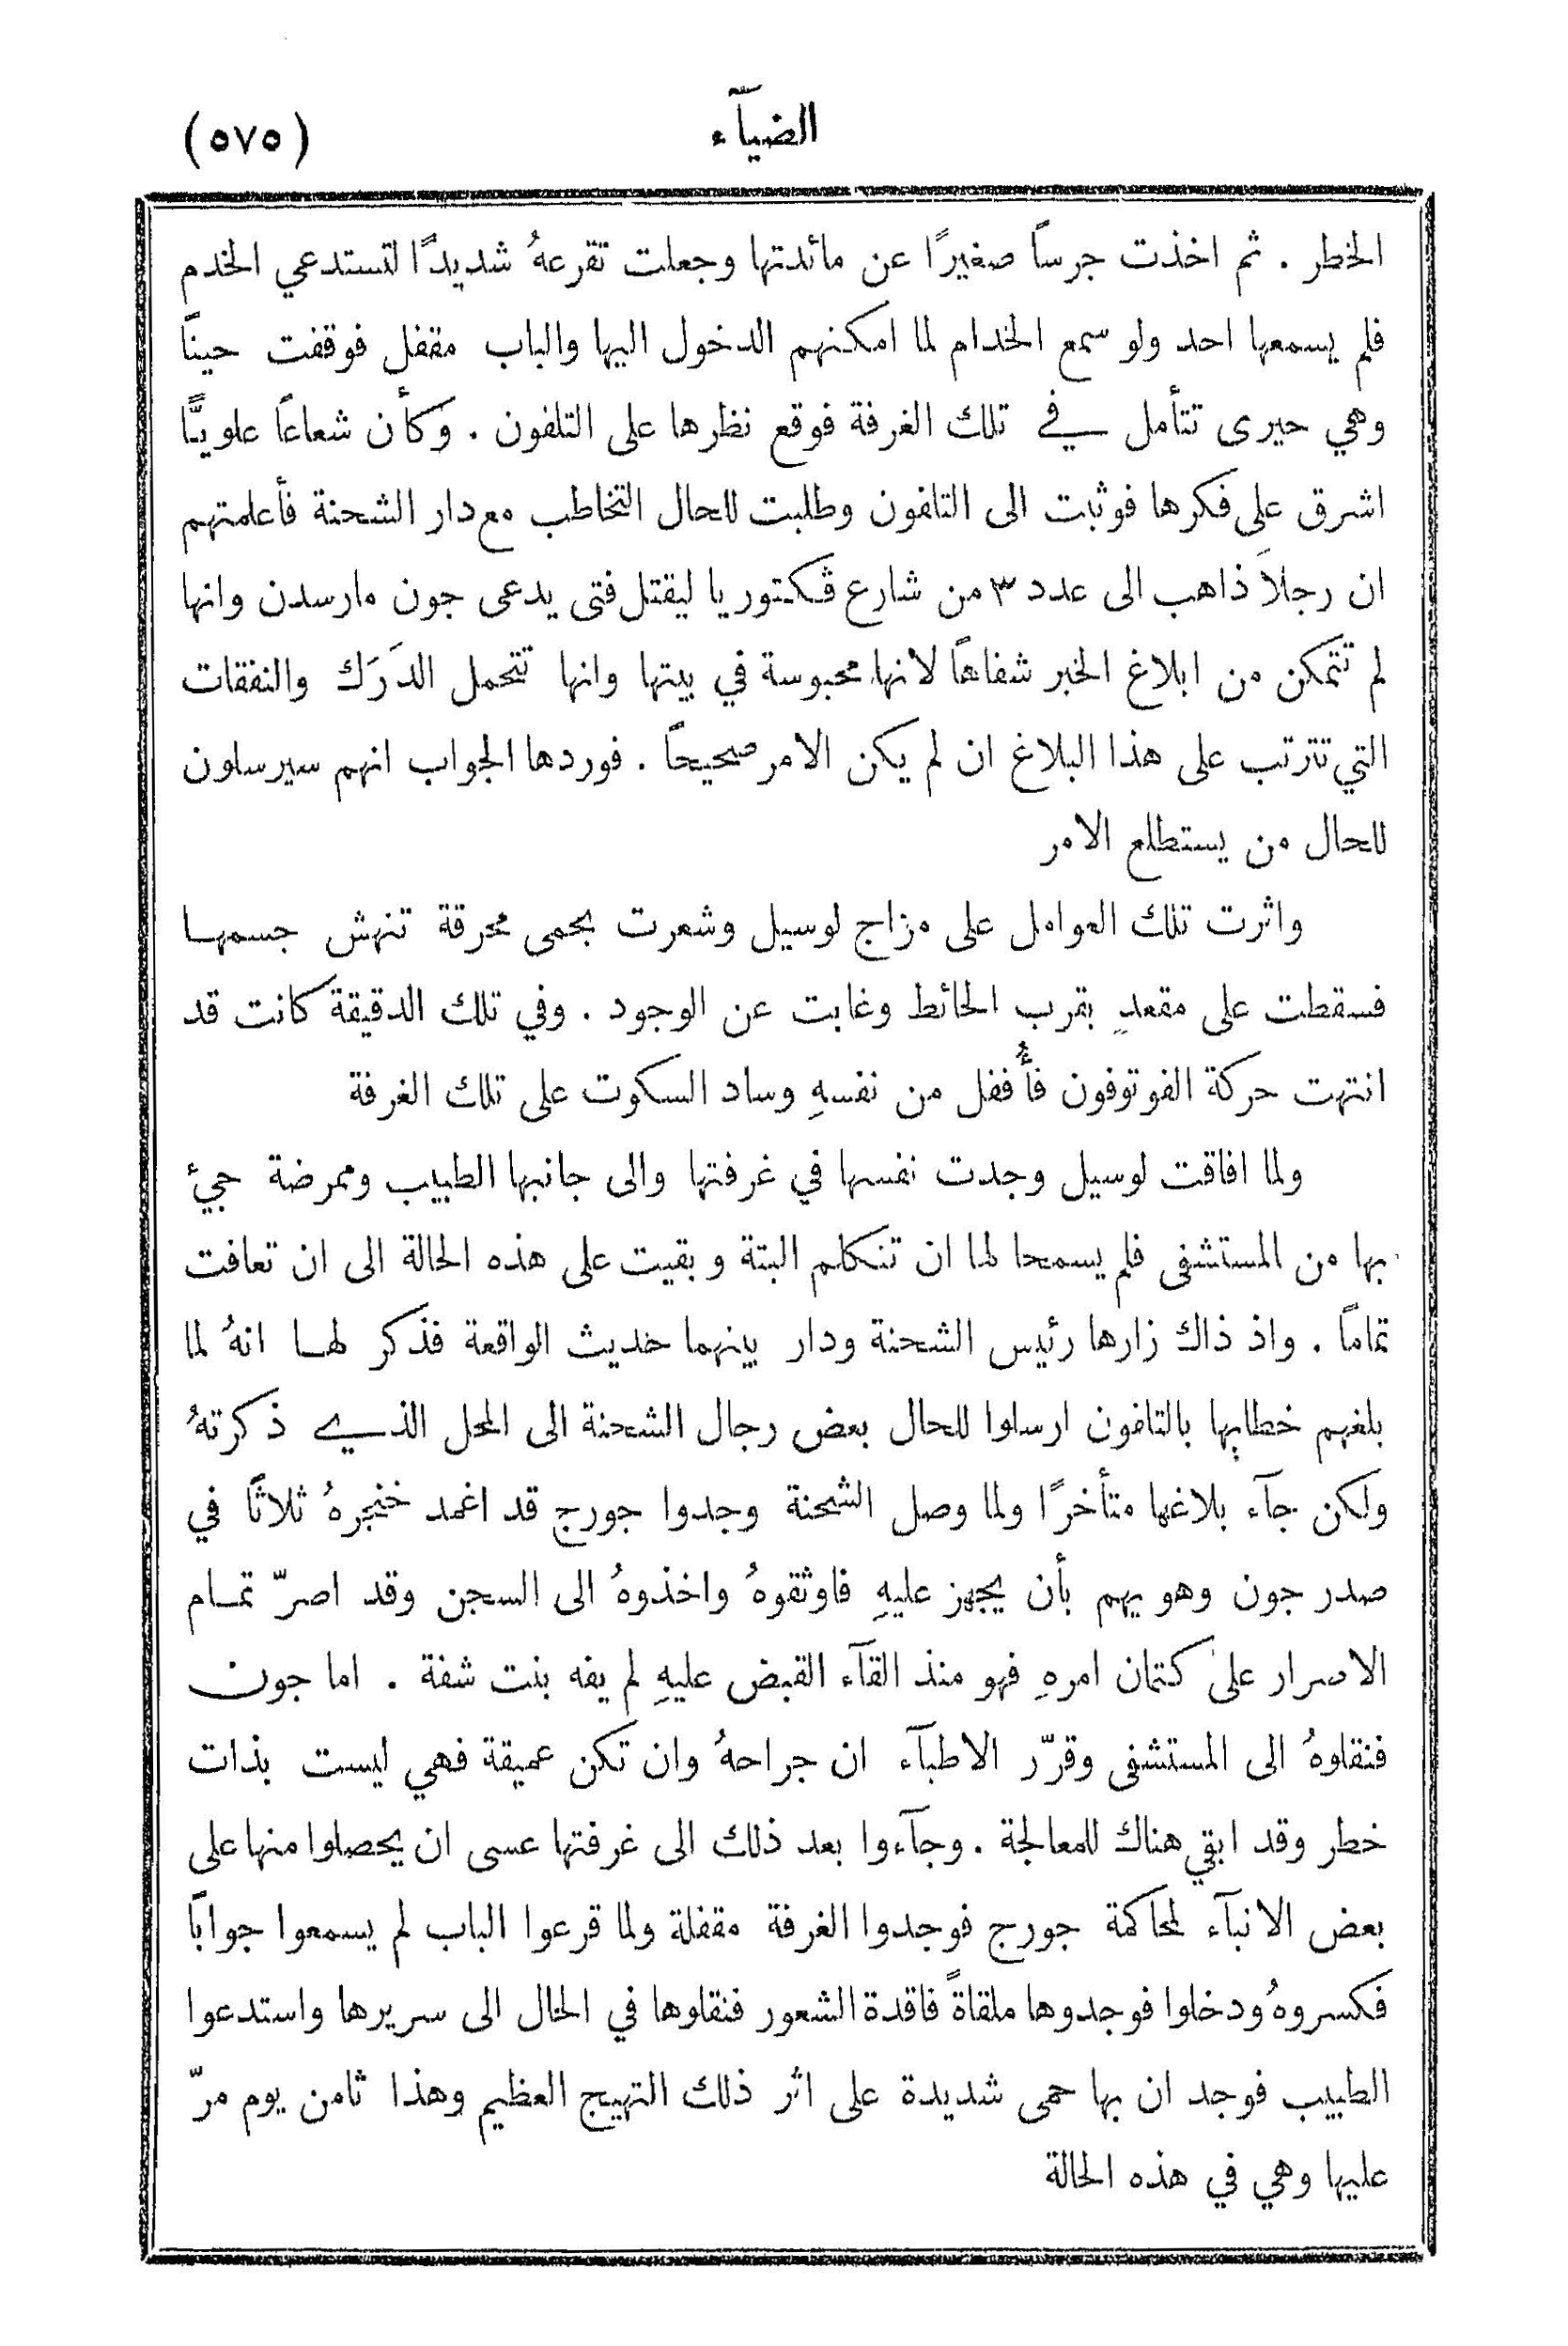 الضيآء
(٥٧٥)
الخطر . ثم اخذت جرساً صغيرًا عن مائدتها وجعلت تقرعهُ شديدًا لتستدعي الخدم
فلم يسمعها احد ولو سمع الخدام لما امكنهم الدخول اليها والباب مقفل فوقفت حيناً
وهي حيرى تتأمل في تلك الغرفة فوقع نظرها على التلفون . وكأن شعاعاً علويًّا
اشرق على فكرها فوثبت الى التلفون وطلبت للحال التخاطب مع دار الشحنة فأعلمتهم
ان رجلاً ذاهب الى عدد ٣ من شارع ڤكتوريا ليقتل فتى يدعى جون مارسدن وانها
لم تتمكن من ابلاغ الخبر شفاهاً لانها محبوسة في بيتها وانها تتحمل الدَرَك والنفقات
التي تترتب على هذا البلاغ ان لم يكن الامر صحيحاً . فوردها الجواب انهم سيرسلون
للحال من يستطلع الامر
واثرت تلك العوامل على مزاج لوسيل وشعرت بحمى محرقة تنهش جسمها
فسقطت على مقعدٍ بقرب الحائط وغابت عن الوجود . وفي تلك الدقيقة كانت قد
انتهت حركة الفوتوفون فأُقفل من نفسهِ وساد السكوت على تلك الغرفة
ولما افاقت لوسيل وجدت نفسها في غرفتها والى جانبها الطبيب وممرضة جيء
بها من المستشفى فلم يسمحا لها ان تتكلم البتة وبقيت على هذه الحالة الى ان تعافت
تماماً . واذ ذاك زارها رئيس الشحنة ودار بينهما حديث الواقعة فذكر لها انهُ لما
بلغهم خطابها بالتلفون ارسلوا للحال بعض رجال الشحنة الى المحل الذي ذكرتهُ
ولكن جآء بلاغها متأخرًا ولما وصل الشحنة وجدوا جورج قد اغمد خنجرهُ ثلاثاً في
صدر جون وهو يهم بأن يجهز عليهِ فاوثقوهُ واخذوهُ الى السجن وقد اصرّ تمام
الاصرار على كتمان امرهِ فهو منذ القآء القبض عليهِ لم يفه بنت شفة . اما جون
فنقلوهُ الى المستشفى وقرّر الاطبآء ان جراحهُ وان تكن عميقة فهي ليست بذات
خطر وقد ابقي هناك للمعالجة . وجآءوا بعد ذلك الى غرفتها عسى ان يحصلوا منها على
بعض الانبآء لمحاكمة جورج فوجدوا الغرفة مقفلة ولما قرعوا الباب لم يسمعوا جواباً
فكسروهُ ودخلوا فوجدوها ملقاةً فاقدة الشعور فنقلوها في الحال الى سريرها واستدعوا
الطبيب فوجد ان بها حمى شديدة على اثر ذلك التهيج العظيم وهذا ثامن يوم مرّ
عليها وهي في هذه الحالة